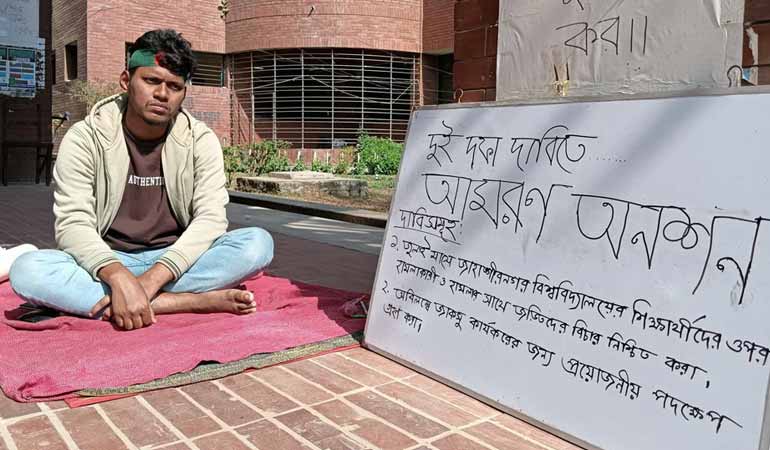 কর।।
দুই দফা দাবিতে......
আমরণ অনশন
দাবিসমূহ:
১. জুলাই মাসে জাহাঙ্গীরনগর বিশ্ববিদ্যালয়ের শিক্ষার্থীদের ওপর
হামলাকারী ও হামলার সাথে জড়িতদের বিচার নিশ্চিত করা,
২. অবিলম্বে জাকসু কার্যকরের জন্য প্রয়োজনীয় পদক্ষেপ
গ্রহণ করা।
AUTHENTI